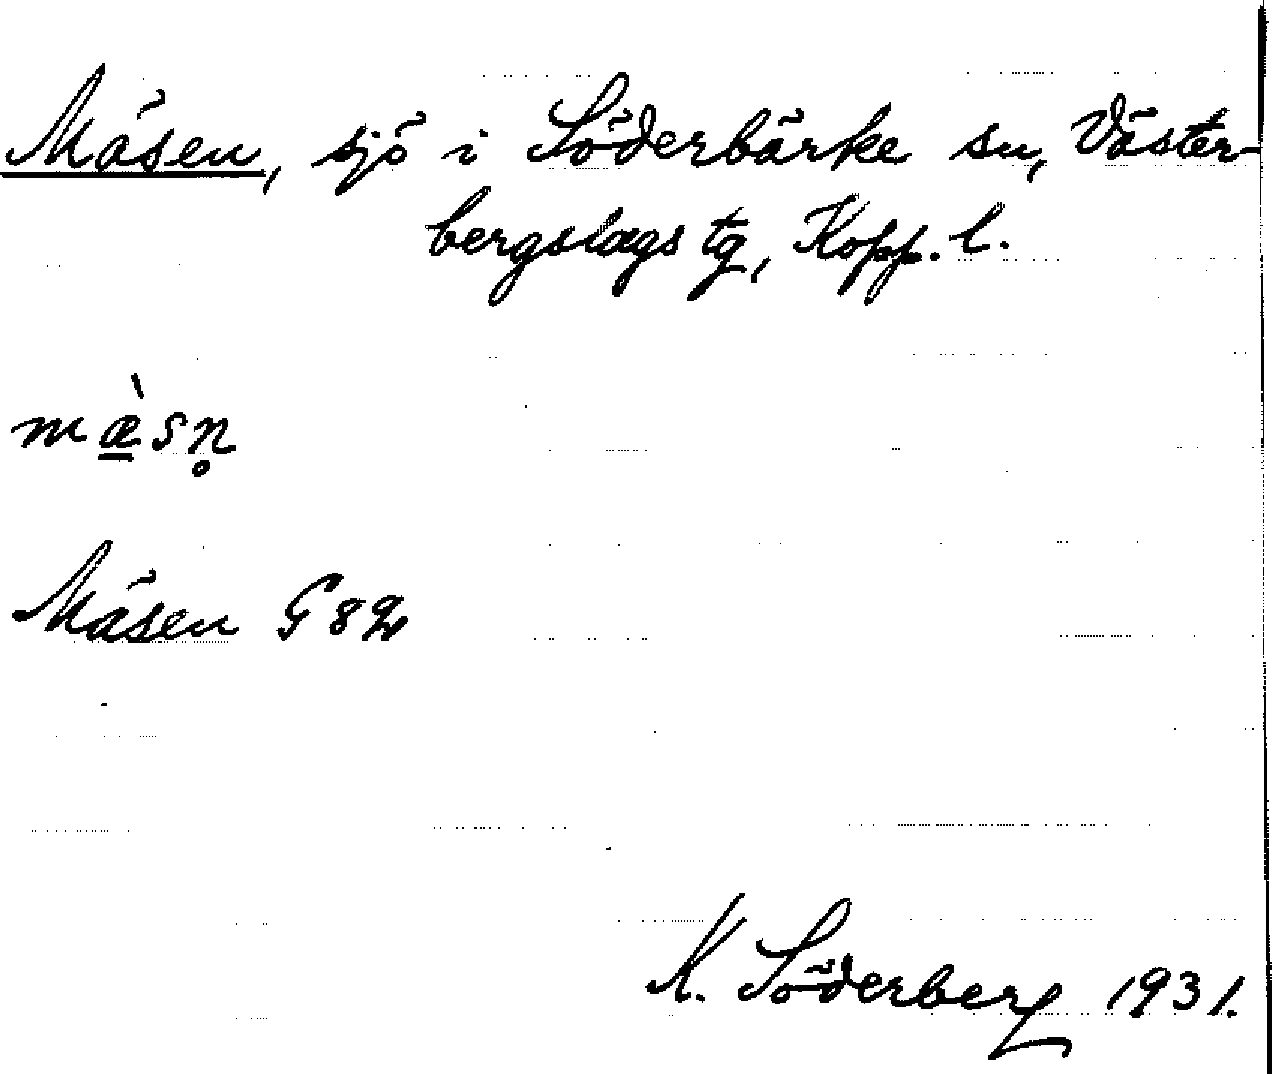 Mäsen, sjö i Söderbärke sn, Väster-
bergslags tg, Kopp. l.
mæ̠̀sn̥
Mäsen G 82
K. Söderberg 1931.